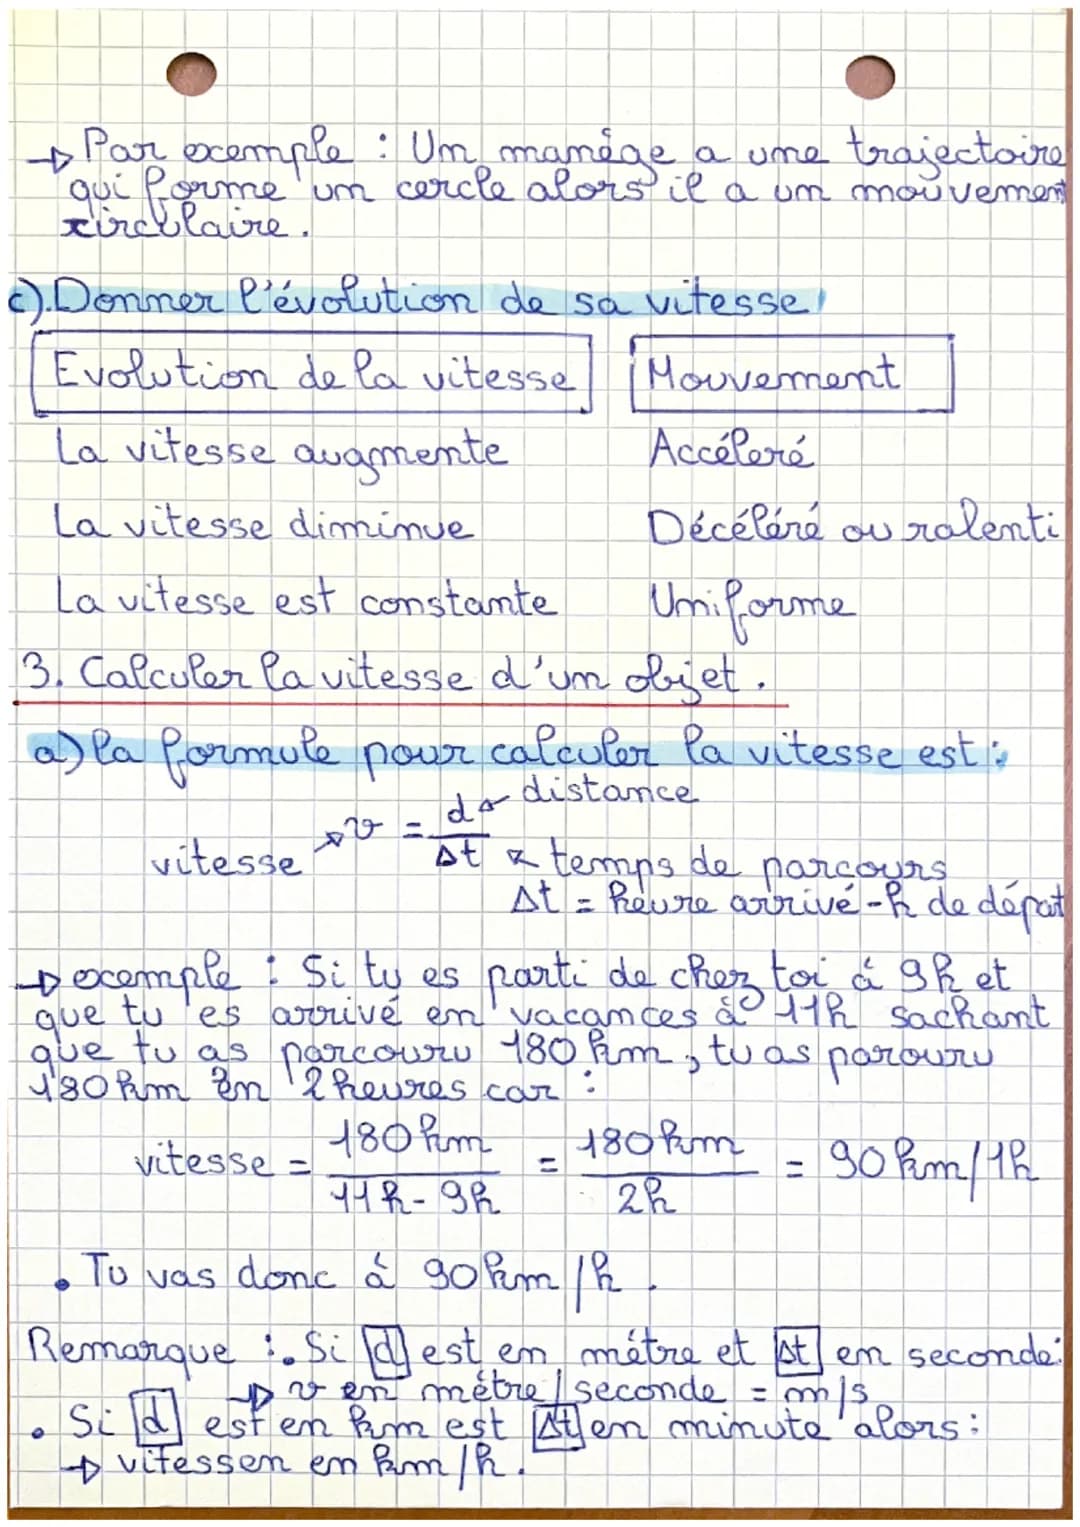 → Par exemple : Un manége a une trajectoire
qui forme un cercle alors il a un mouvement
circulaire.
c). Donner l'évolution de sa vitesse
Evolution de la vitesse Mouvement
La vitesse augmente Accéleré
La vitesse diminue Décéléré ou ralenti
La vitesse est constante Uniforme
3. Calculer la vitesse d'un objet.
a) la formule pour calculer la vitesse est :
vitesse v = d/Δt distance
temps de parcours
Δt = heure arrivé - h de dépat
→ exemple : Si tu es parti de chez toi á 9h et
que tu es arrivé en vacances à 11h sachant
que tu as parcouru 180 km, tu as parouru
180 km en 2 heures car :
vitesse = 180 km / 11h - 9h = 180 km / 2h = 90 km/1h
• Tu vas donc á 90 km/h.
Remarque : • Si d est en métre et Δt en seconde:
→ v en métre/seconde = m/s
• Si d est en km est Δt en minute alors:
→ vitessen en km/h.